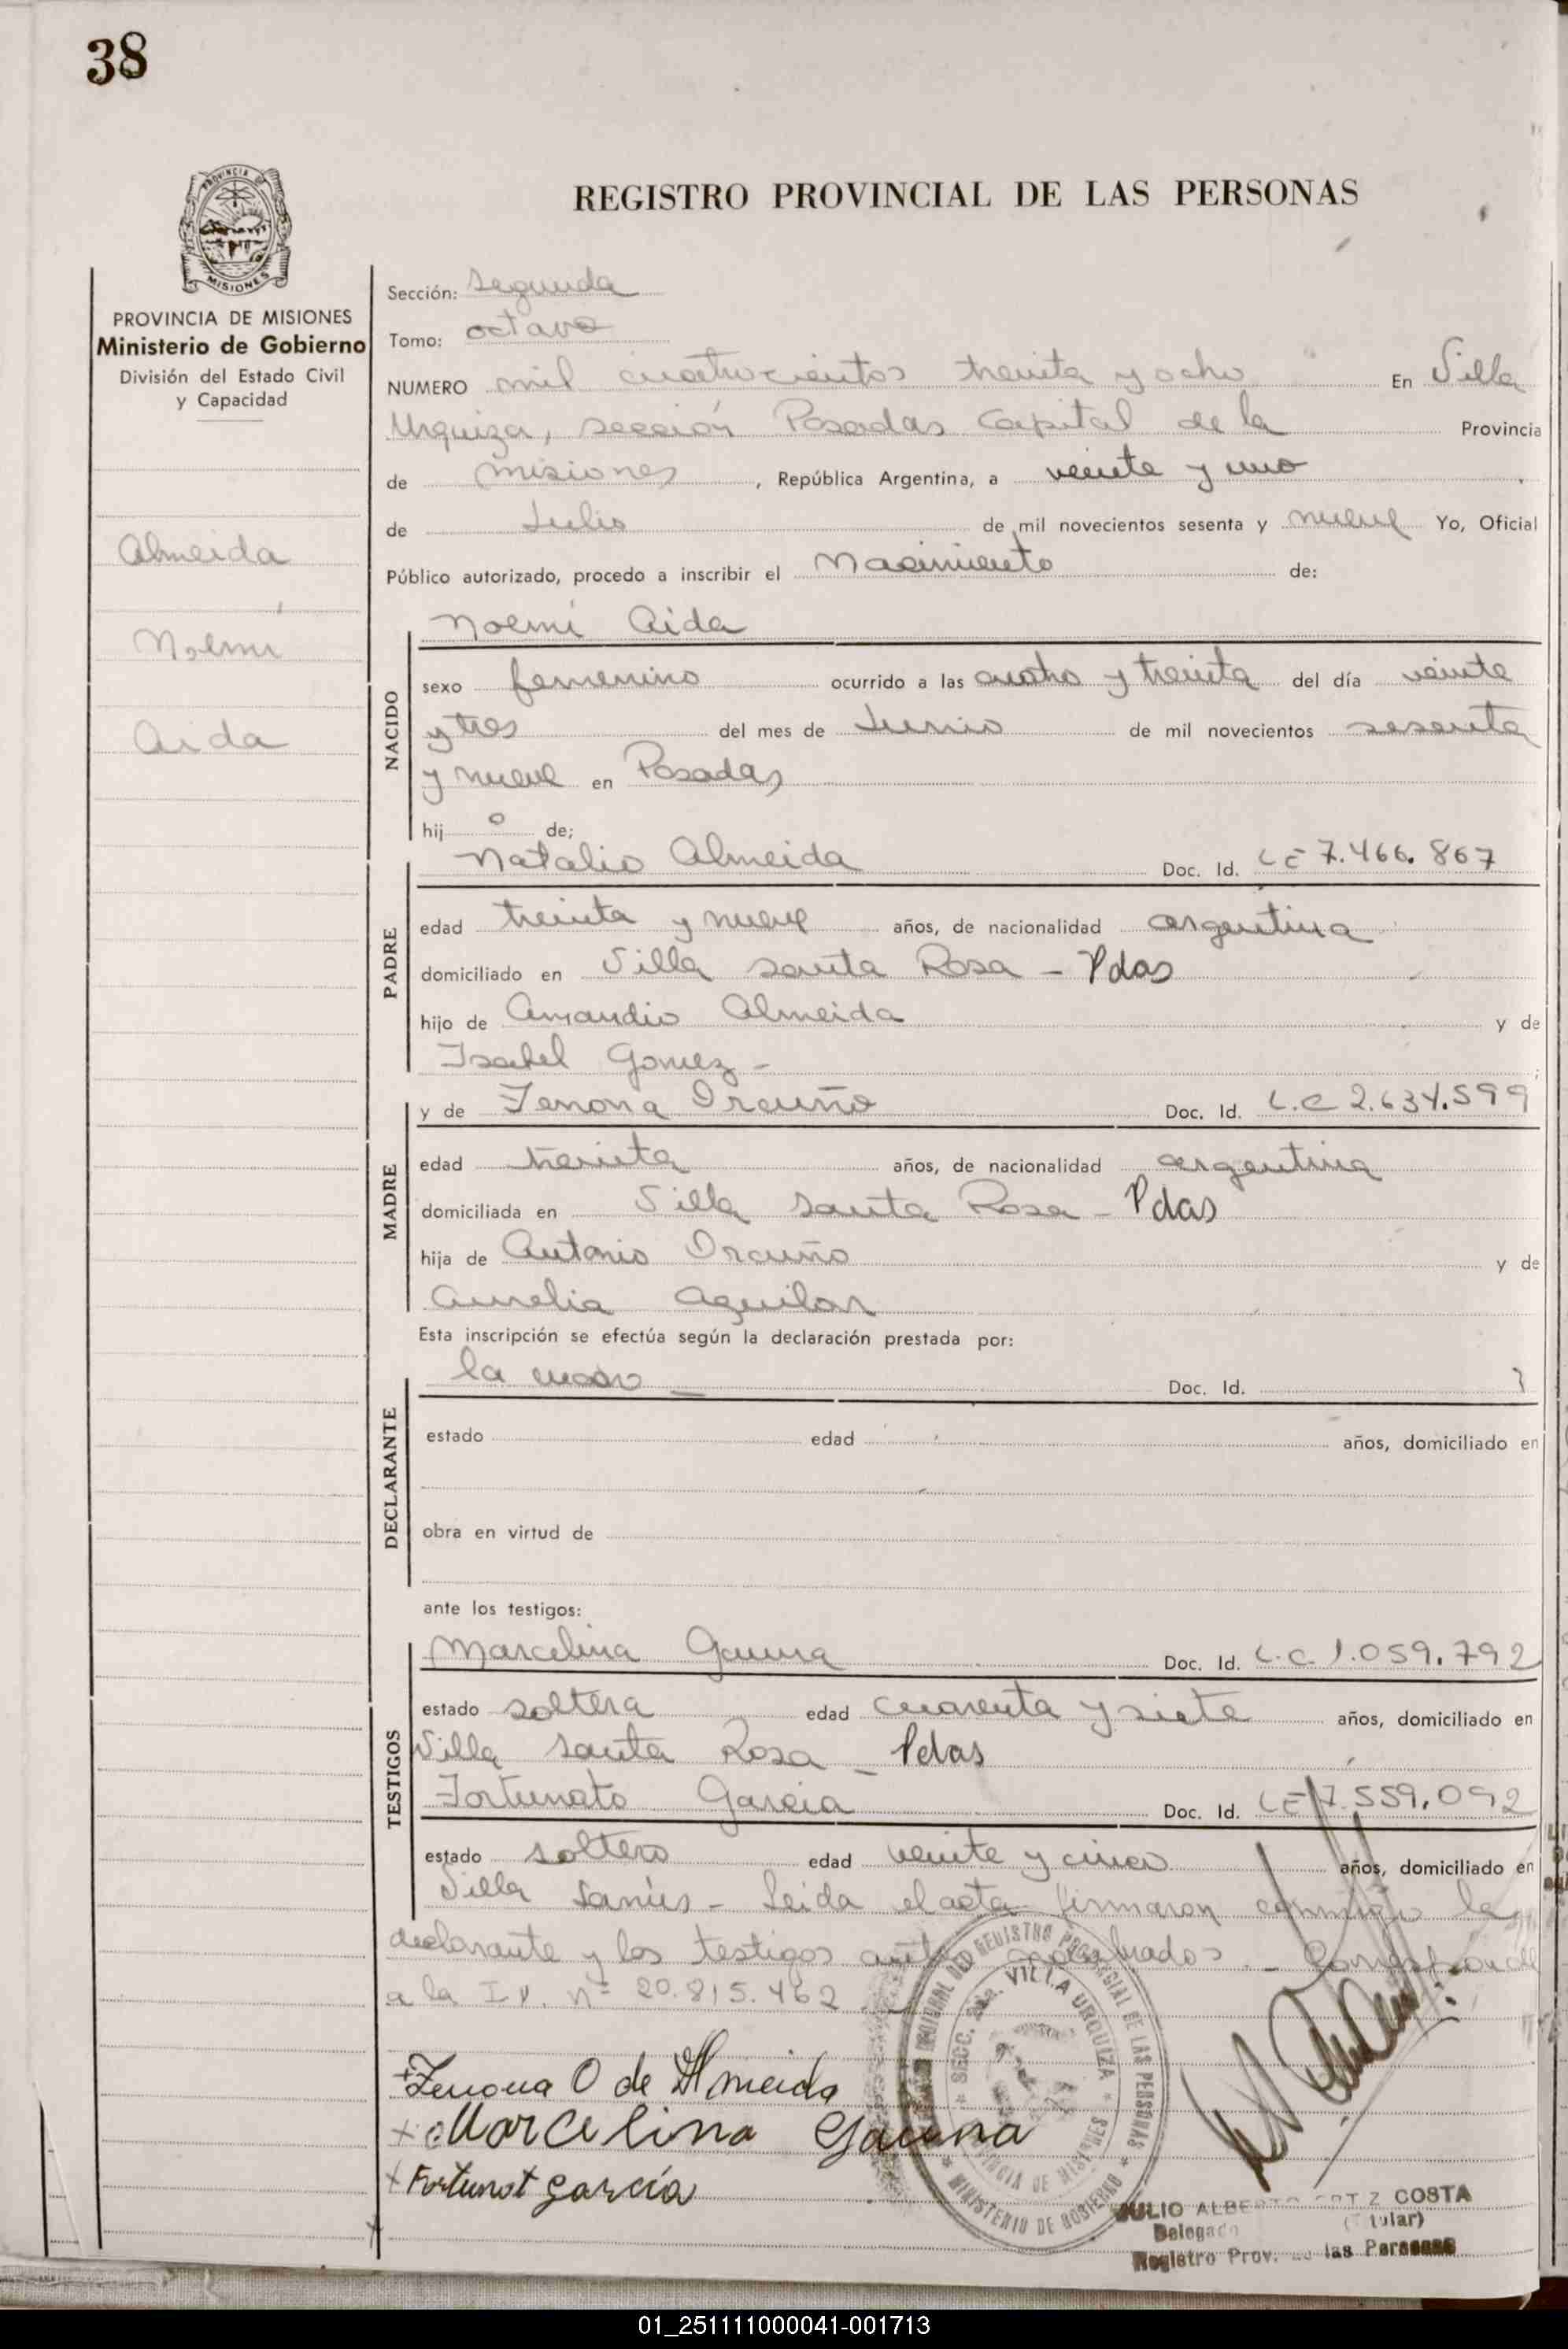 38
REGISTRO PROVINCIAL DE LAS PERSONAS
PROVINCIA DE
MISIONES
PROVINCIA DE MISIONES
Ministerio de Gobierno
División del Estado Civil
y Capacidad
Almeida
Noemí
Aida
Sección: Segunda
Tomo: octavo
NUMERO mil cuatrocientos treinta y ocho En Villa
Urquiza, sección Posadas Capital de la Provincia
de misiones, República Argentina, a veinte y uno
de Julio de mil novecientos sesenta y nueve Yo, Oficial
Público autorizado, procedo a inscribir el Nacimiento de:
NACIDO
Noemí Aida
sexo femenino ocurrido a las cuatro y treinta del día veinte
y tres del mes de Junio de mil novecientos sesenta
y nueve en Posadas
hij o de;
PADRE
Natalio Almeida Doc. Id. LE 7.466.867
edad treinta y nueve años, de nacionalidad argentina
domiciliado en Villa santa Rosa - Pdas
hijo de Amandio Almeida y de
Isabel Gomez -
MADRE
y de Zenona Orcuño Doc. Id. L.C 2.634.599
edad treinta años, de nacionalidad argentina
domiciliada en Villa santa Rosa - Pdas
hija de Antonio Orcuño y de
Aurelia Aguilar
Esta inscripción se efectúa según la declaración prestada por:
DECLARANTE
la Doc. Id.
estado edad años, domiciliado en
obra en virtud de
ante los testigos:
TESTIGOS
Marcelina Gauna Doc. Id. L.C. 1.059.792
estado soltera edad cuarenta y siete años, domiciliado en
Villa santa Rosa - Pdas
Fortunato Garcia Doc. Id. LE 7.559.092
estado soltero edad veinte y cinco años, domiciliado en
Villa Lanús - Leida el acta firmaron conmigo la
declarante y los testigos antes nombrados. - Corresponde
a la I.P. nº 20.815.462
+ Zenona O de Almeida
+ Marcelina Gauna
+ Fortunat García
SECC. 2da. VILLA URQUIZA
PROVINCIA DE MISIONES
REGISTRO PROVINCIAL DE LAS PERSONAS
MINISTERIO DE GOBIERNO
JULIO ALBERTO ORTIZ COSTA
Delegado (Titular)
Registro Prov. de las Personas
01_251111000041-001713